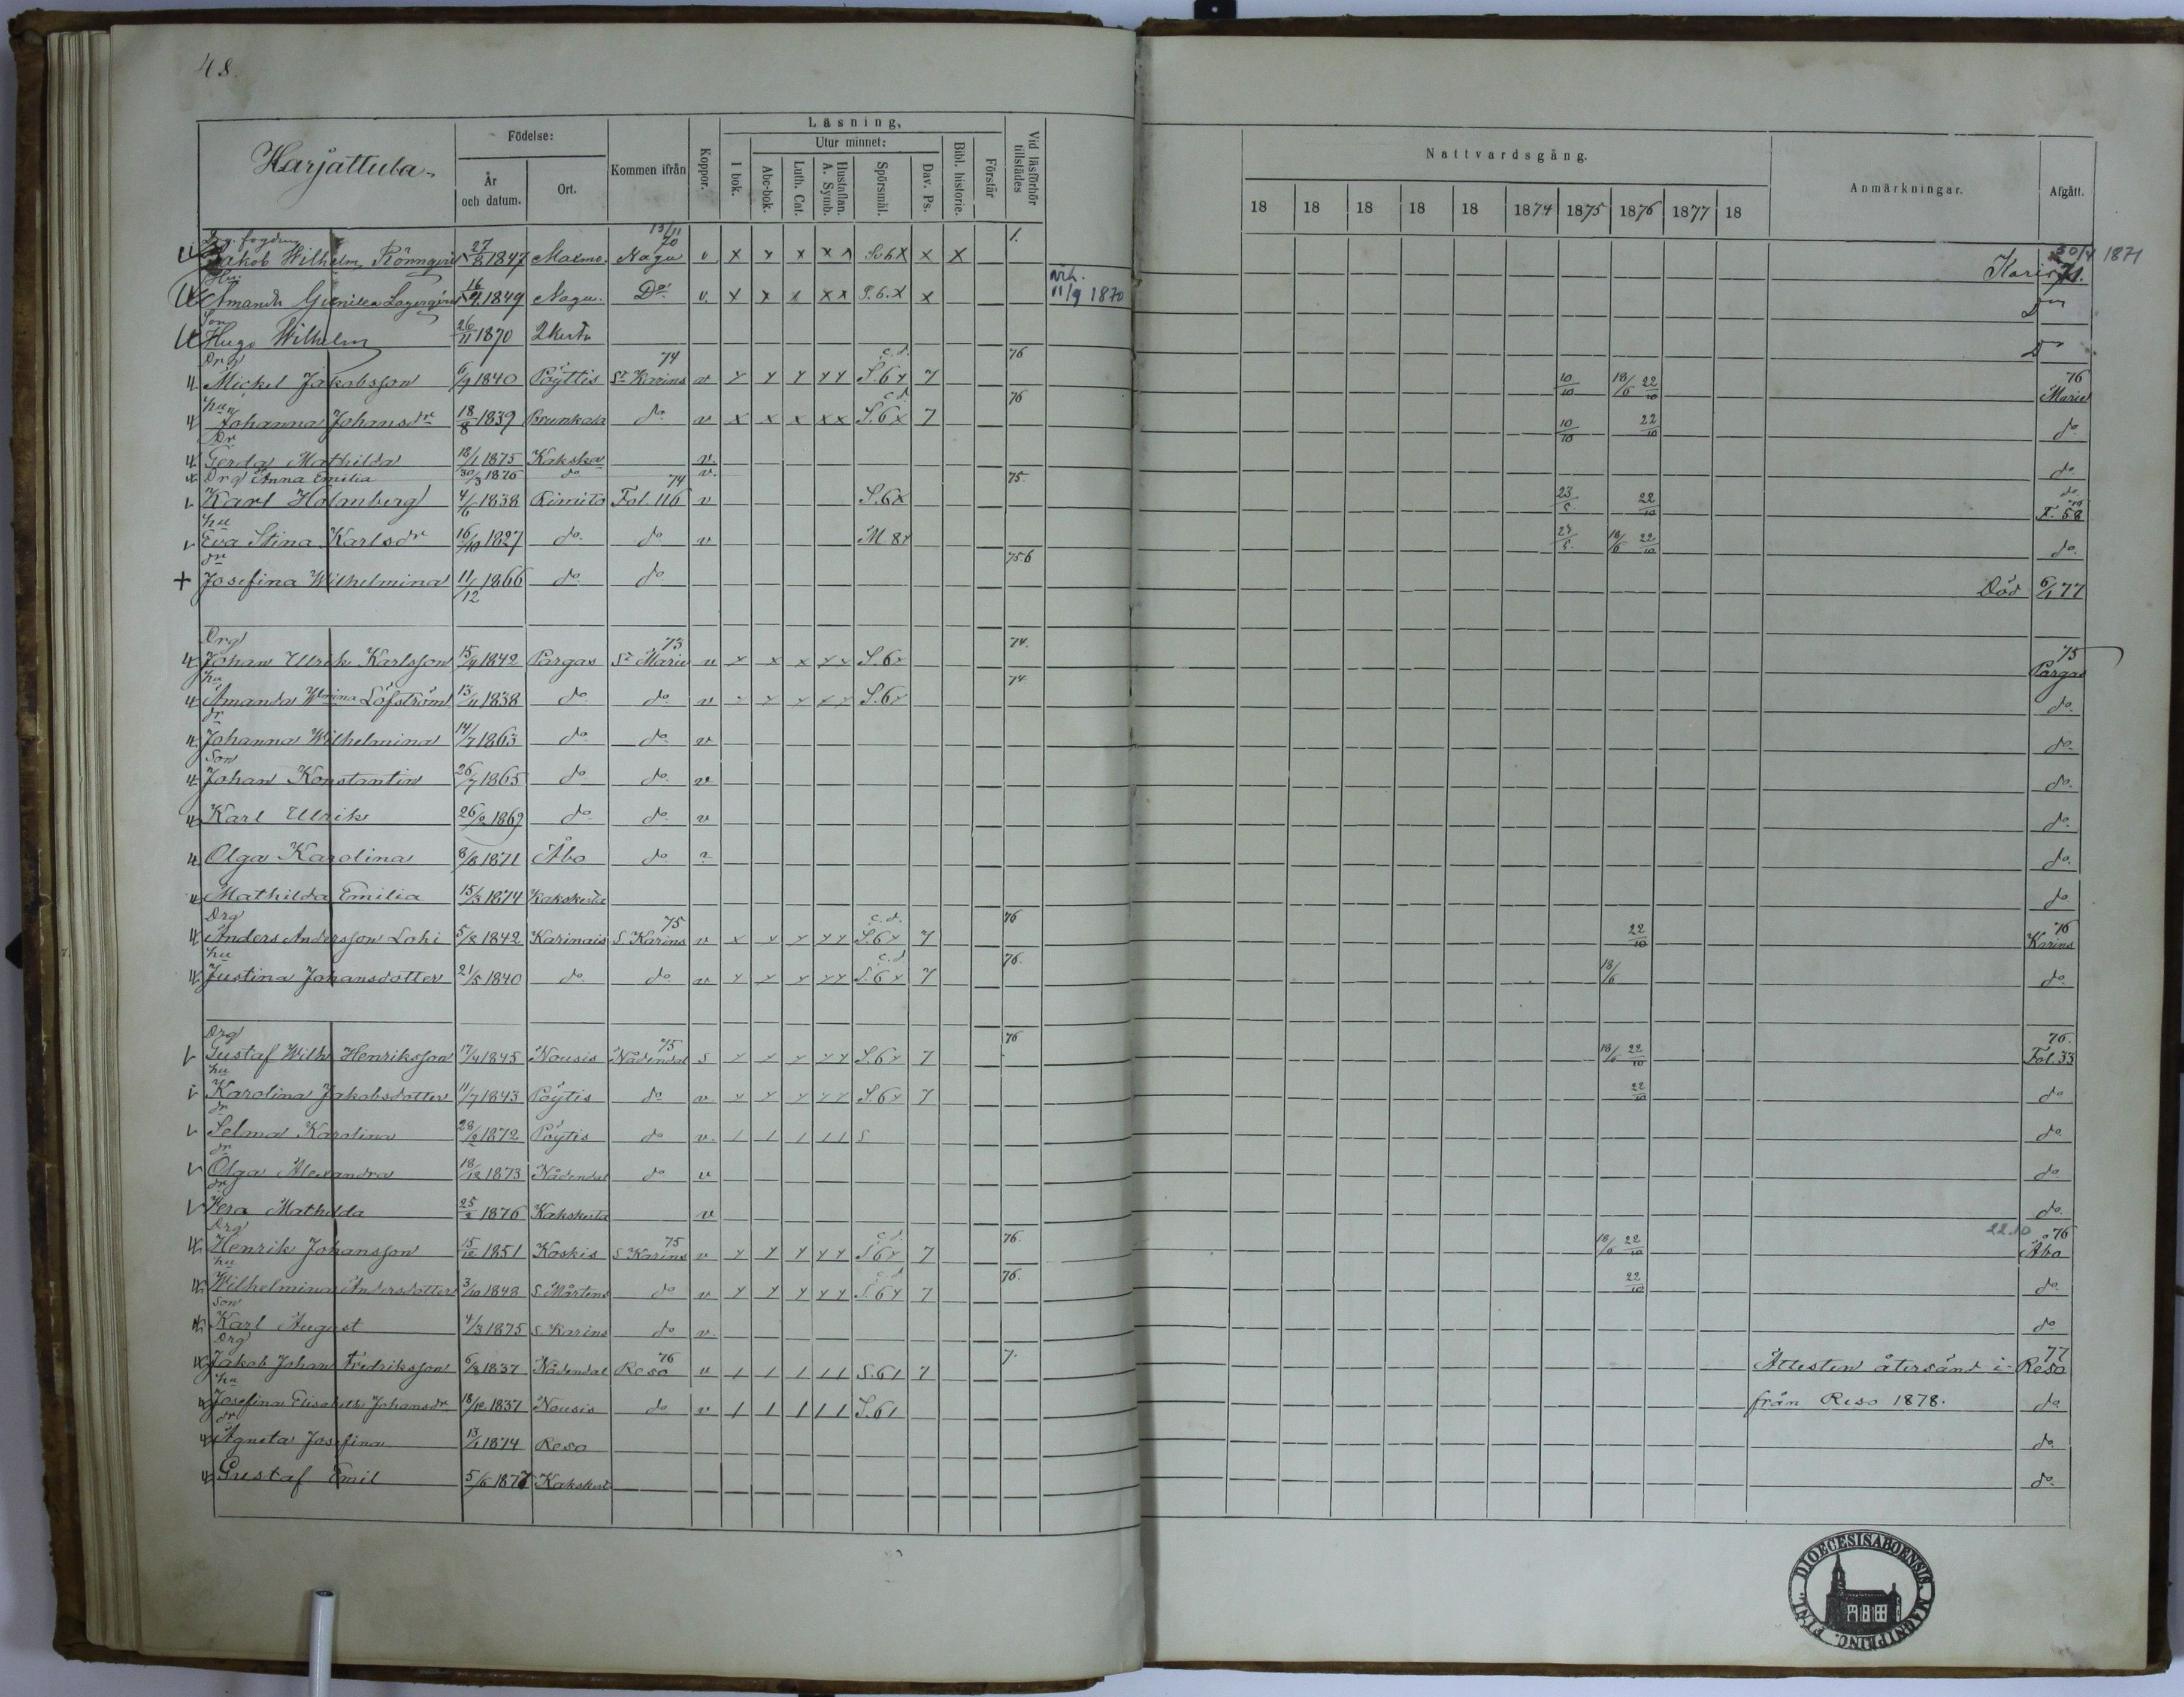 48.
Harjattula.
Födelse:
År och datum.
Ort.
Kommen ifrån
Koppor.
Läsning,
I bok.
Utur minnet:
Abc-bok.
Luth. Cat.
Hustaflan. A. Symb.
Spörsmål.
Dav. Ps.
Bibl. historie.
Förstår
Vid läsförhör tillstädes
Nattvardsgång.
18 18 18 18 18 1874 1875 1876 1877 18
Anmärkningar.
Afgått.
13/11 70 1.
Jakob Wilhelm Rönnqvist 27/8 1847 Nagu v x x x x x x x Karis 71. 30/4 1871
Hu
Amanda Gunilla 16/9 1849 Nagu. Do v. x x x x x x vih. 11/9 1870 Do
Son
Hugo Wilhelm 26/11 1870 Do
Drg 74 c.d. 76
Mickel Jakobsson 6/9 1840 Pöyttis St Karins v S.6 7 10/10 18/6 22/10 76 Marie
hu c.d. 76
Johanna Johansdr 18/8 1839 do v x x x x x S.6x 7 10/10 22/10 do
Dr
Gerda Mathilda 18/1 1875 Kakska v do
Anna Emilia 30/3 1876 do v.
Drg 74 75.
Karl Holmberg 4/6 1838 Rimito Fol. 116 v S.6x 23/5 22/10 F. 58
hu
Eva Stina Karlsdr 16/10 1827 do. do. v M 8 23/5 18/6 22/10 do.
dr 75.6
+ Josefina Wilhelmina 11/12 1866 do. do Död 6/1 77
Drg 73 74.
Johan Ulrik Karlsson 15/4 1842 Pargas St Marie v x x S.6 75 Pargas
hu 74.
Amanda Wmina Löfström 13/11 1838 do do. v S.6 do.
dr
Johanna Wilhelmina 14/7 1863 do. do. v do.
Son
Johan Konstantin 26/7 1865 do do. v do.
Karl Ulrik 26/2 1869 do do. v do.
Olga Karolina 8/8 1871 Åbo do ? do.
Mathilda Emilia 15/3 1874 Kakskerta do
Drg 75 c.d. 76
Anders Andersson Lohi 5/8 1842 Karinais S. Karins v S.6 7 22/10 76 Karins
hu c.d. 76.
Justina Johansdotter 21/5 1840 do. do. v S.6 7 18/6 do.
Drg 75 76
Gustaf Wilh Henriksson 17/4 1845 Nousis Nådendal s S.6 7 18/6 22/10 76. Fol. 33
hu
Karolina Jakobsdotter 11/7 1843 Pöytis do v. S.6 7 22/10 do
dr
Selma Karolina 28/2 1872 Pöytis do v. 1 1 1 1 1 S do
dr
Olga Alexandra 18/12 1873 Nådendal do v do
dr
Vera Mathilda 25/2 1876 Kakskerta v do.
Drg 75 c.d. 76.
Henrik Johansson 15/12 1851 Koskis S Karins v S 6 7 18/6 22/10 22.10 76 Åbo
hu c.d. 76.
Wilhelmina Andersdotter 3/10 1848 S. Mårtens do v S 6 7 22/10 do.
Son
Karl August 4/3 1875 S. Karins do v. do
Drg 76 7.
Jakob Johan Fredriksson 6/8 1837 Nådendal Reso v 1 1 1 1 1 S.61 7 Attesten återsänd i 77 Reso
hu
Josefina Elisabeth Johansdr 18/12 1837 Nousis do v 1 1 1 1 1 S.61 från Reso 1878. do
dr
Agneta Josefina 13/1 1874 Reso do
Gustaf Emil 5/6 1877 Kakskert do.
DIOECESIS ABOENSIS. MAGNI PRINC. FINL.